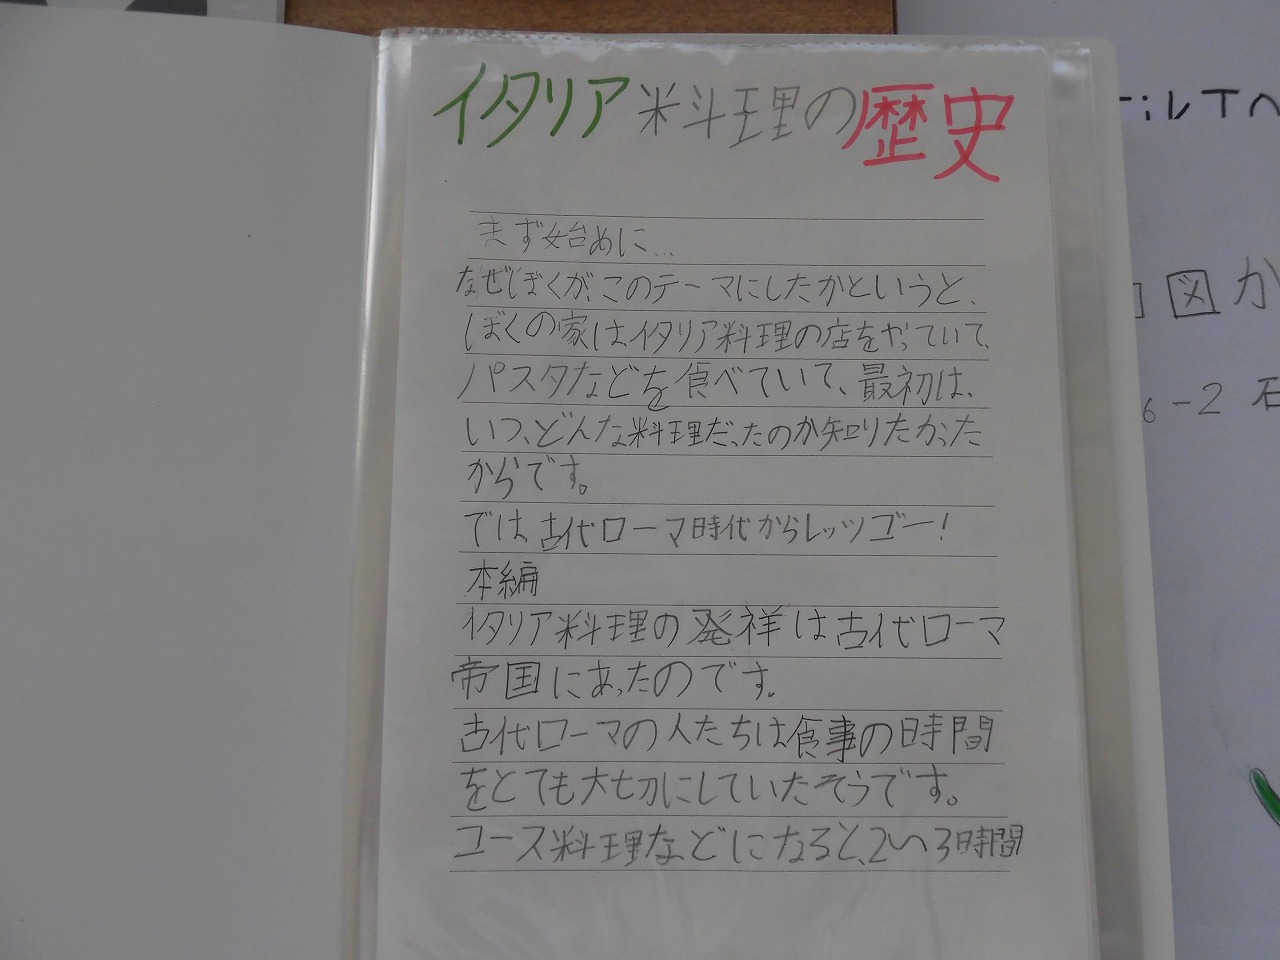 イタリア料理の歴史
まず始めに…
なぜぼくが、このテーマにしたかというと、
ぼくの家はイタリア料理の店をやっていて、
パスタなどを食べていて、最初は、
いつ、どんな料理だったのか知りたかった
からです。
では古代ローマ時代からレッツゴー!
本編
イタリア料理の発祥は古代ローマ
帝国にあったのです。
古代ローマの人たちは食事の時間
をとても大切にしていたそうです。
コース料理などになると、2〜3時間
図か
6-2 石